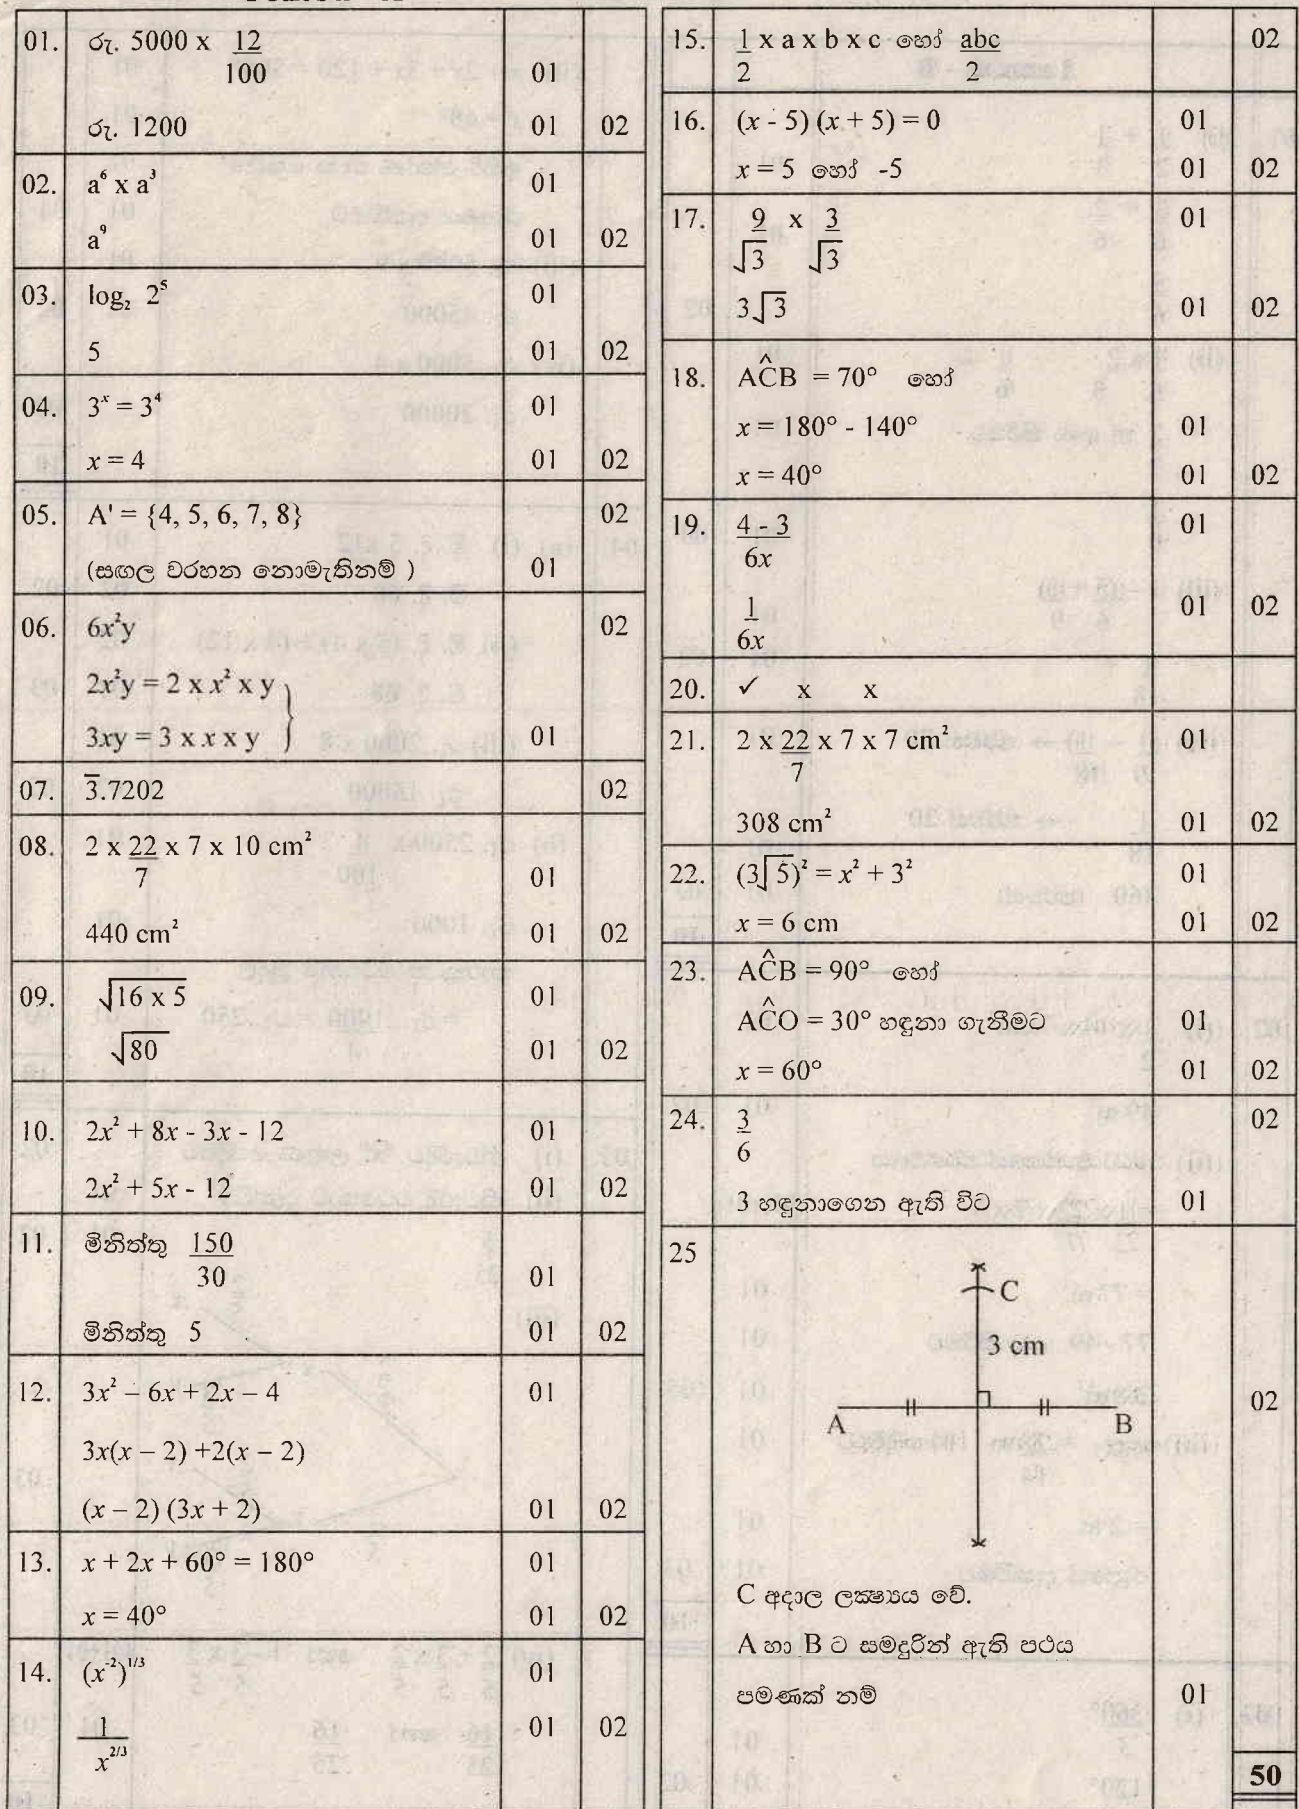 01. රු. 5000 x 12/100 01
රු. 1200 01 02
02. a⁶ x a³ 01
a⁹ 01 02
03. log₂ 2⁵ 01
5 01 02
04. 3ˣ = 3⁴ 01
x = 4 01 02
05. A' = {4, 5, 6, 7, 8} 02
(සඟල වරහන නොමැතිනම් ) 01
06. 6x²y 02
2x²y = 2 x x² x y
3xy = 3 x x x y } 01
07. 3̅.7202 02
08. 2 x 22/7 x 7 x 10 cm² 01
440 cm² 01 02
09. √16 x 5 01
√80 01 02
10. 2x² + 8x - 3x - 12 01
2x² + 5x - 12 01 02
11. මිනිත්තු 150/30 01
මිනිත්තු 5 01 02
12. 3x² – 6x + 2x – 4 01
3x(x – 2) +2(x – 2)
(x – 2) (3x + 2) 01 02
13. x + 2x + 60° = 180° 01
x = 40° 01 02
14. (x⁻²)^1/3 01
1/x^2/3 01 02
15. 1/2 x a x b x c හෝ abc/2 02
16. (x - 5) (x + 5) = 0 01
x = 5 හෝ -5 01 02
17. 9/√3 x 3/√3 01
3√3 01 02
18. AĈB = 70° හෝ
x = 180° - 140° 01
x = 40° 01 02
19. 4 - 3/6x 01
1/6x 01 02
20. ✓ x x
21. 2 x 22/7 x 7 x 7 cm² 01
308 cm² 01 02
22. (3√5)² = x² + 3² 01
x = 6 cm 01 02
23. AĈB = 90° හෝ
AĈO = 30° හඳුනා ගැනීමට 01
x = 60° 01 02
24. 3/6 02
3 හඳුනාගෙන ඇති විට 01
25
C
3 cm
A B 02
C අදාල ලක්‍ෂ්‍යය වේ.
A හා B ට සමදුරින් ඇති පථය
පමණක් නම් 01
50